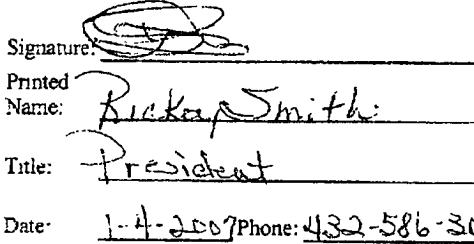 Signature:
Printed
Name: Ricky Smith
Title: President
Date: 1-4-2007 Phone: 432-586-30